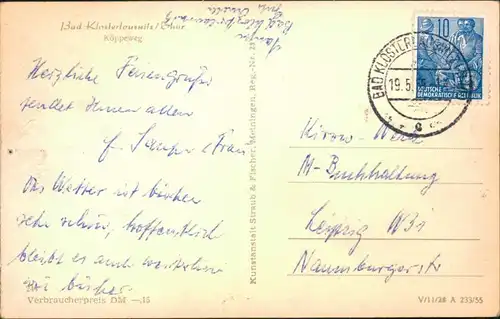 Bad Klosterlausnitz/Thür
Köppeweg
Herzliche Feriengrüße
sendet Ihnen allen
Das Wetter ist bisher
sehr schön, hoffentlich
bleibt es auch weiterhin
wie bisher.
Verbraucherpreis DM —.15
Kunstanstalt Straub & Fischer, Meiningen, Reg.-Nr.
10
DEUTSCHE
DEMOKRATISCHE REPUBLIK
BAD KLOSTERLAUSNITZ
19.5.
c
Kirow-Werk
M-Buchhaltung
Leipzig W31
Naumburgerstr.
V/11/28 A 233/55